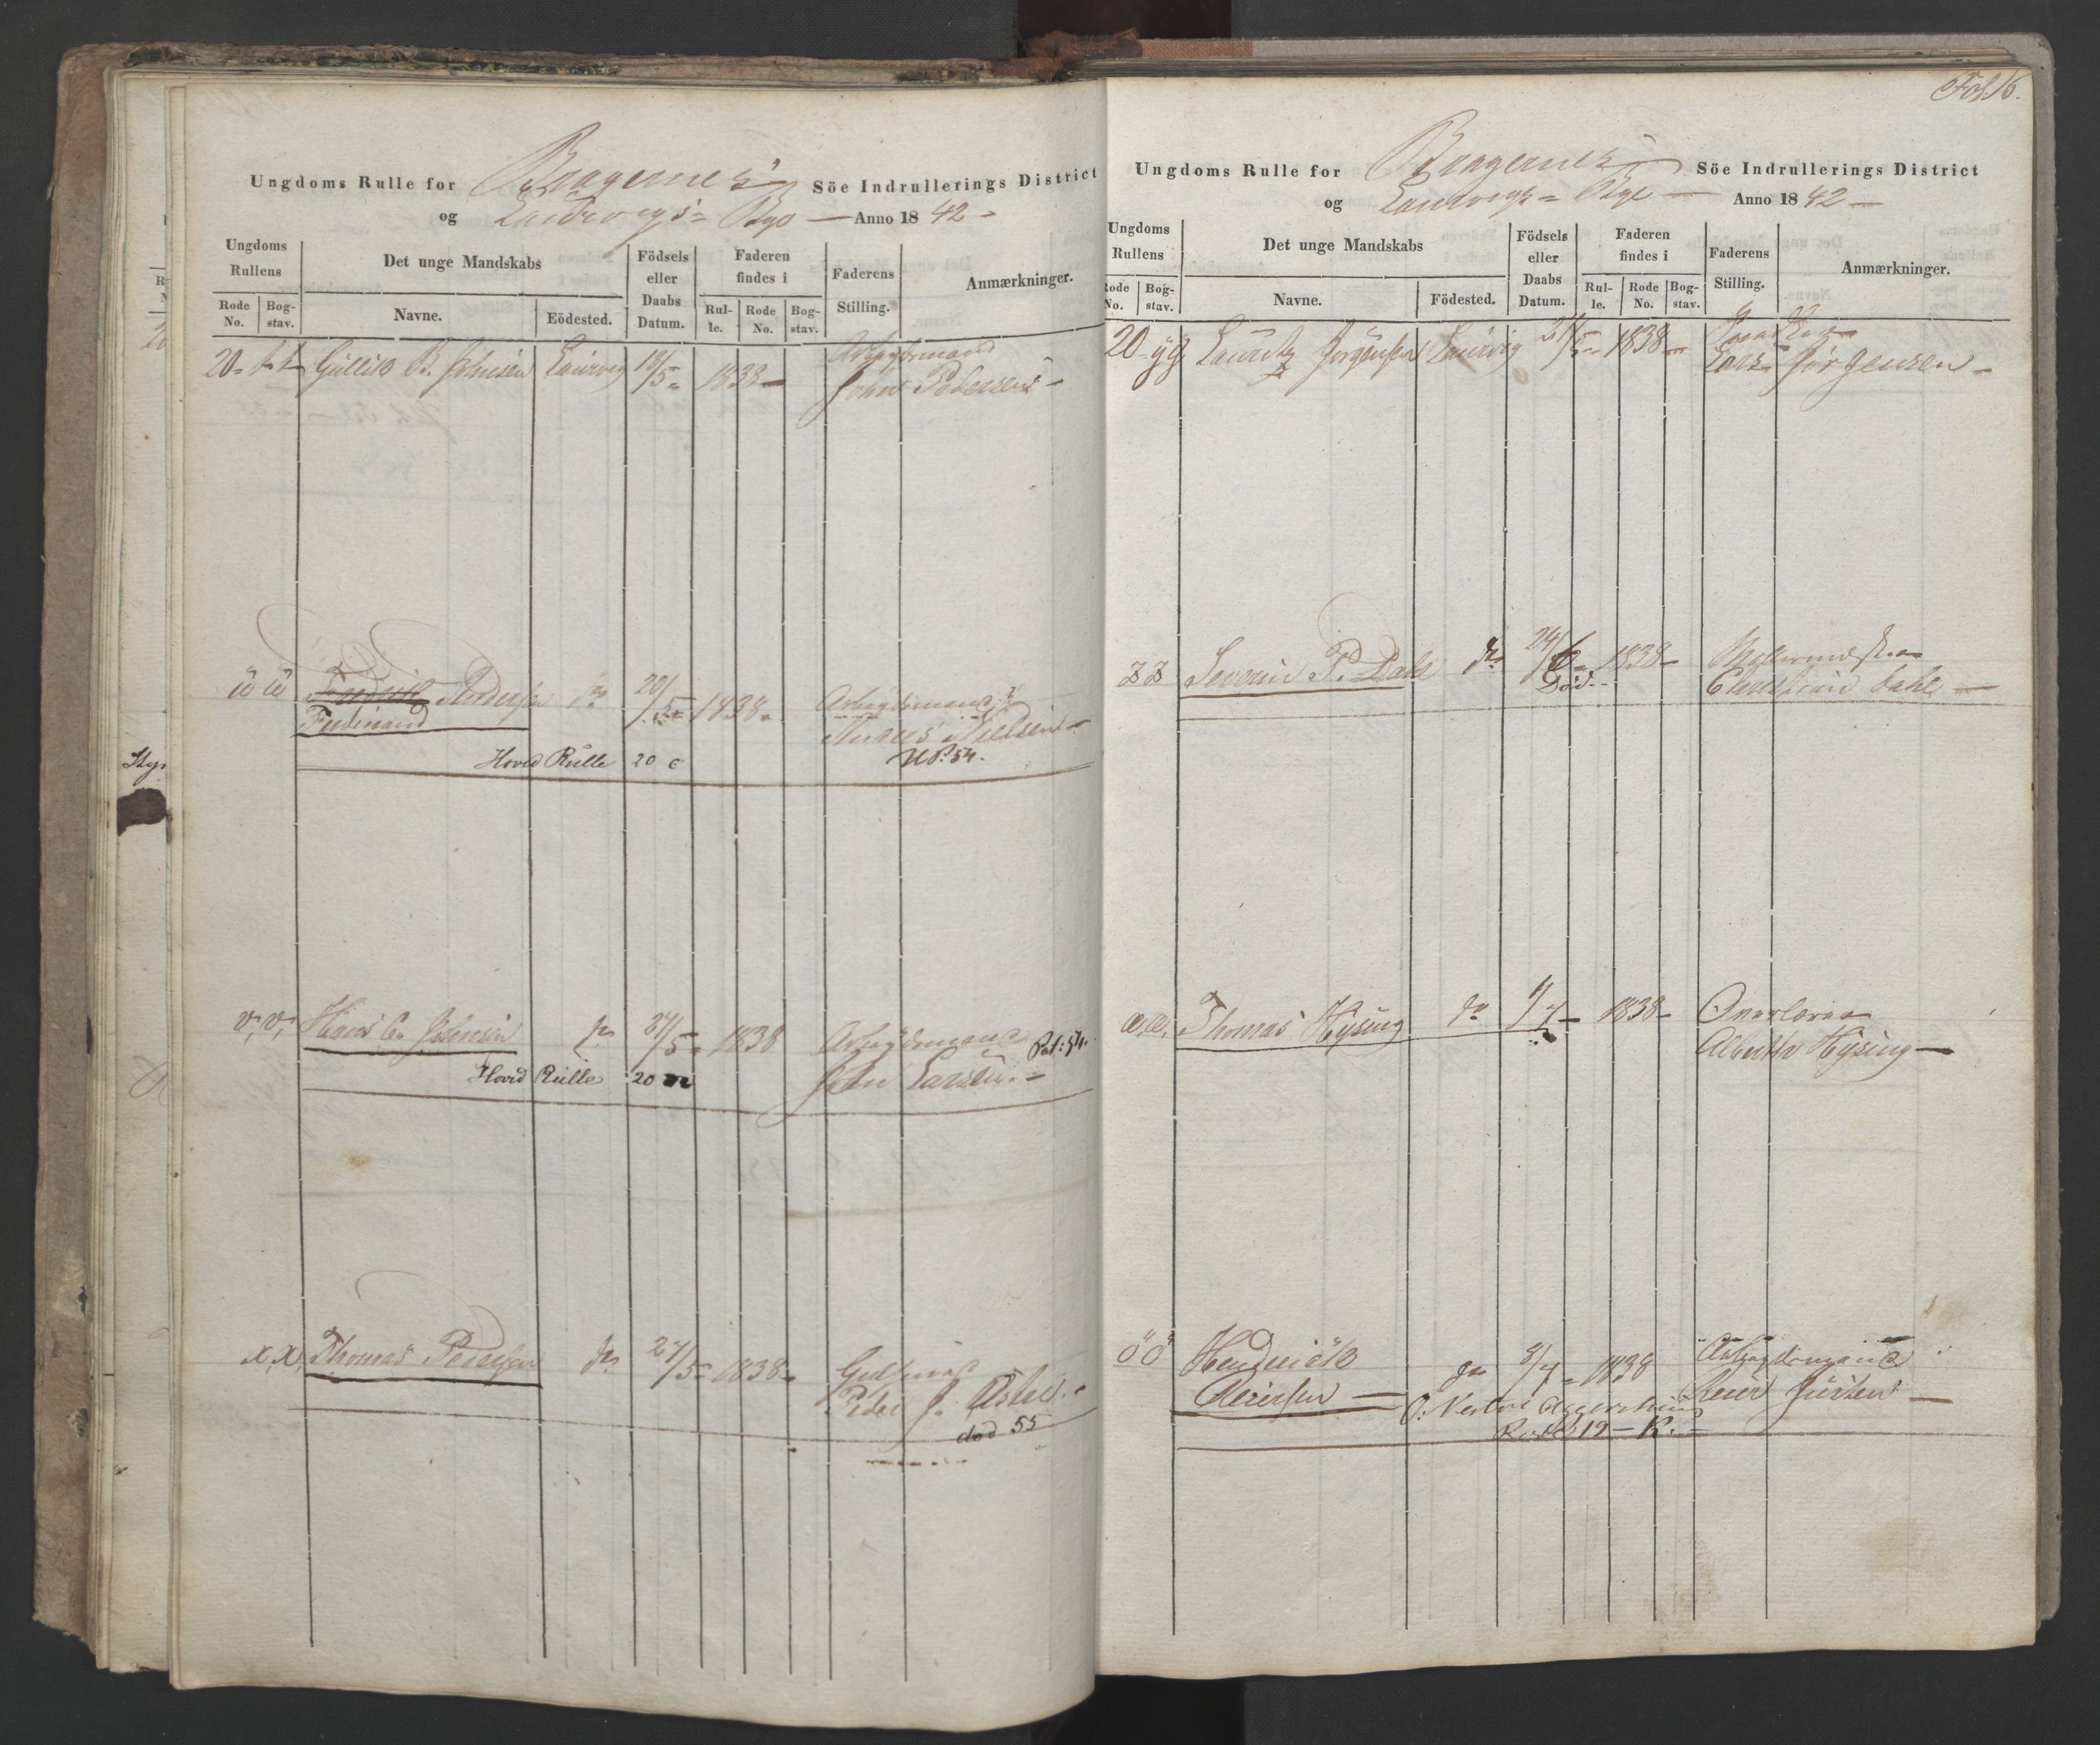 Ungdoms Rulle for Bragernes Söe Indrullerings District
og Laurvigs Bye — Anno 1842
Ungdoms Rullens
Det unge Mandskabs
Födsels eller Daabs Datum.
Faderen findes i
Faderens Stilling.
Anmærkninger.
Rode No.
Bogstav.
Navne.
Eödested.
Rulle.
Rode No.
Bogstav.
20 tt Gullik B. Johnsen Laurvig 18/5 1838 Arbeidsmand
John Pedersen
üü Andersen do 20/5 1838 Arbeidsmand
Ferdinand Anders Nielsen
Hoved Rulle 20 c
v,v, Hans C. Johnsen do 27/5 1838 Arbeidsmand
John Larsen Pat: 54.
Hoved Rulle 20 m
x,x, Thomas Pedersen do 27/5 1838
Peder J.
død 55
Fol 16.
Ungdoms Rulle for Bragernes Söe Indrullerings District
og Laurvigs Bye — Anno 1842
Ungdoms Rullens
Det unge Mandskabs
Födsels eller Daabs Datum.
Faderen findes i
Faderens Stilling.
Anmærkninger.
Rode No.
Bogstav.
Navne.
Födested.
Rulle.
Rode No.
Bogstav.
20 yy Lauritz Jörgensen Laurvig 1838
Lars Jörgensen
zz Severin P. Dahl do 24/6 1838
Död Christian Dahl
æ,æ, Thomas Hysing do 1838
Hysing
öö Hendrick do 8/7 1838 Arbeidsmand
19 — K.